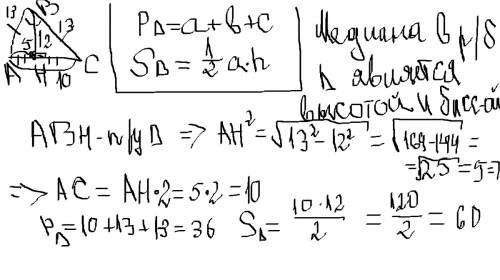 13 B 13
5 12
A H 10 C
P_Δ = a + b + c
S_Δ = 1/2 a·h
Медиана в р/б
Δ является
высотой и бисс-ой
ABH - п/у Δ => AH² = √13² - 12² = √169 - 144 =
= √25 = 5 =>
=> AC = AH · 2 = 5 · 2 = 10
P_Δ = 10 + 13 + 13 = 36 S_Δ = 10 · 12 / 2 = 120 / 2 = 60